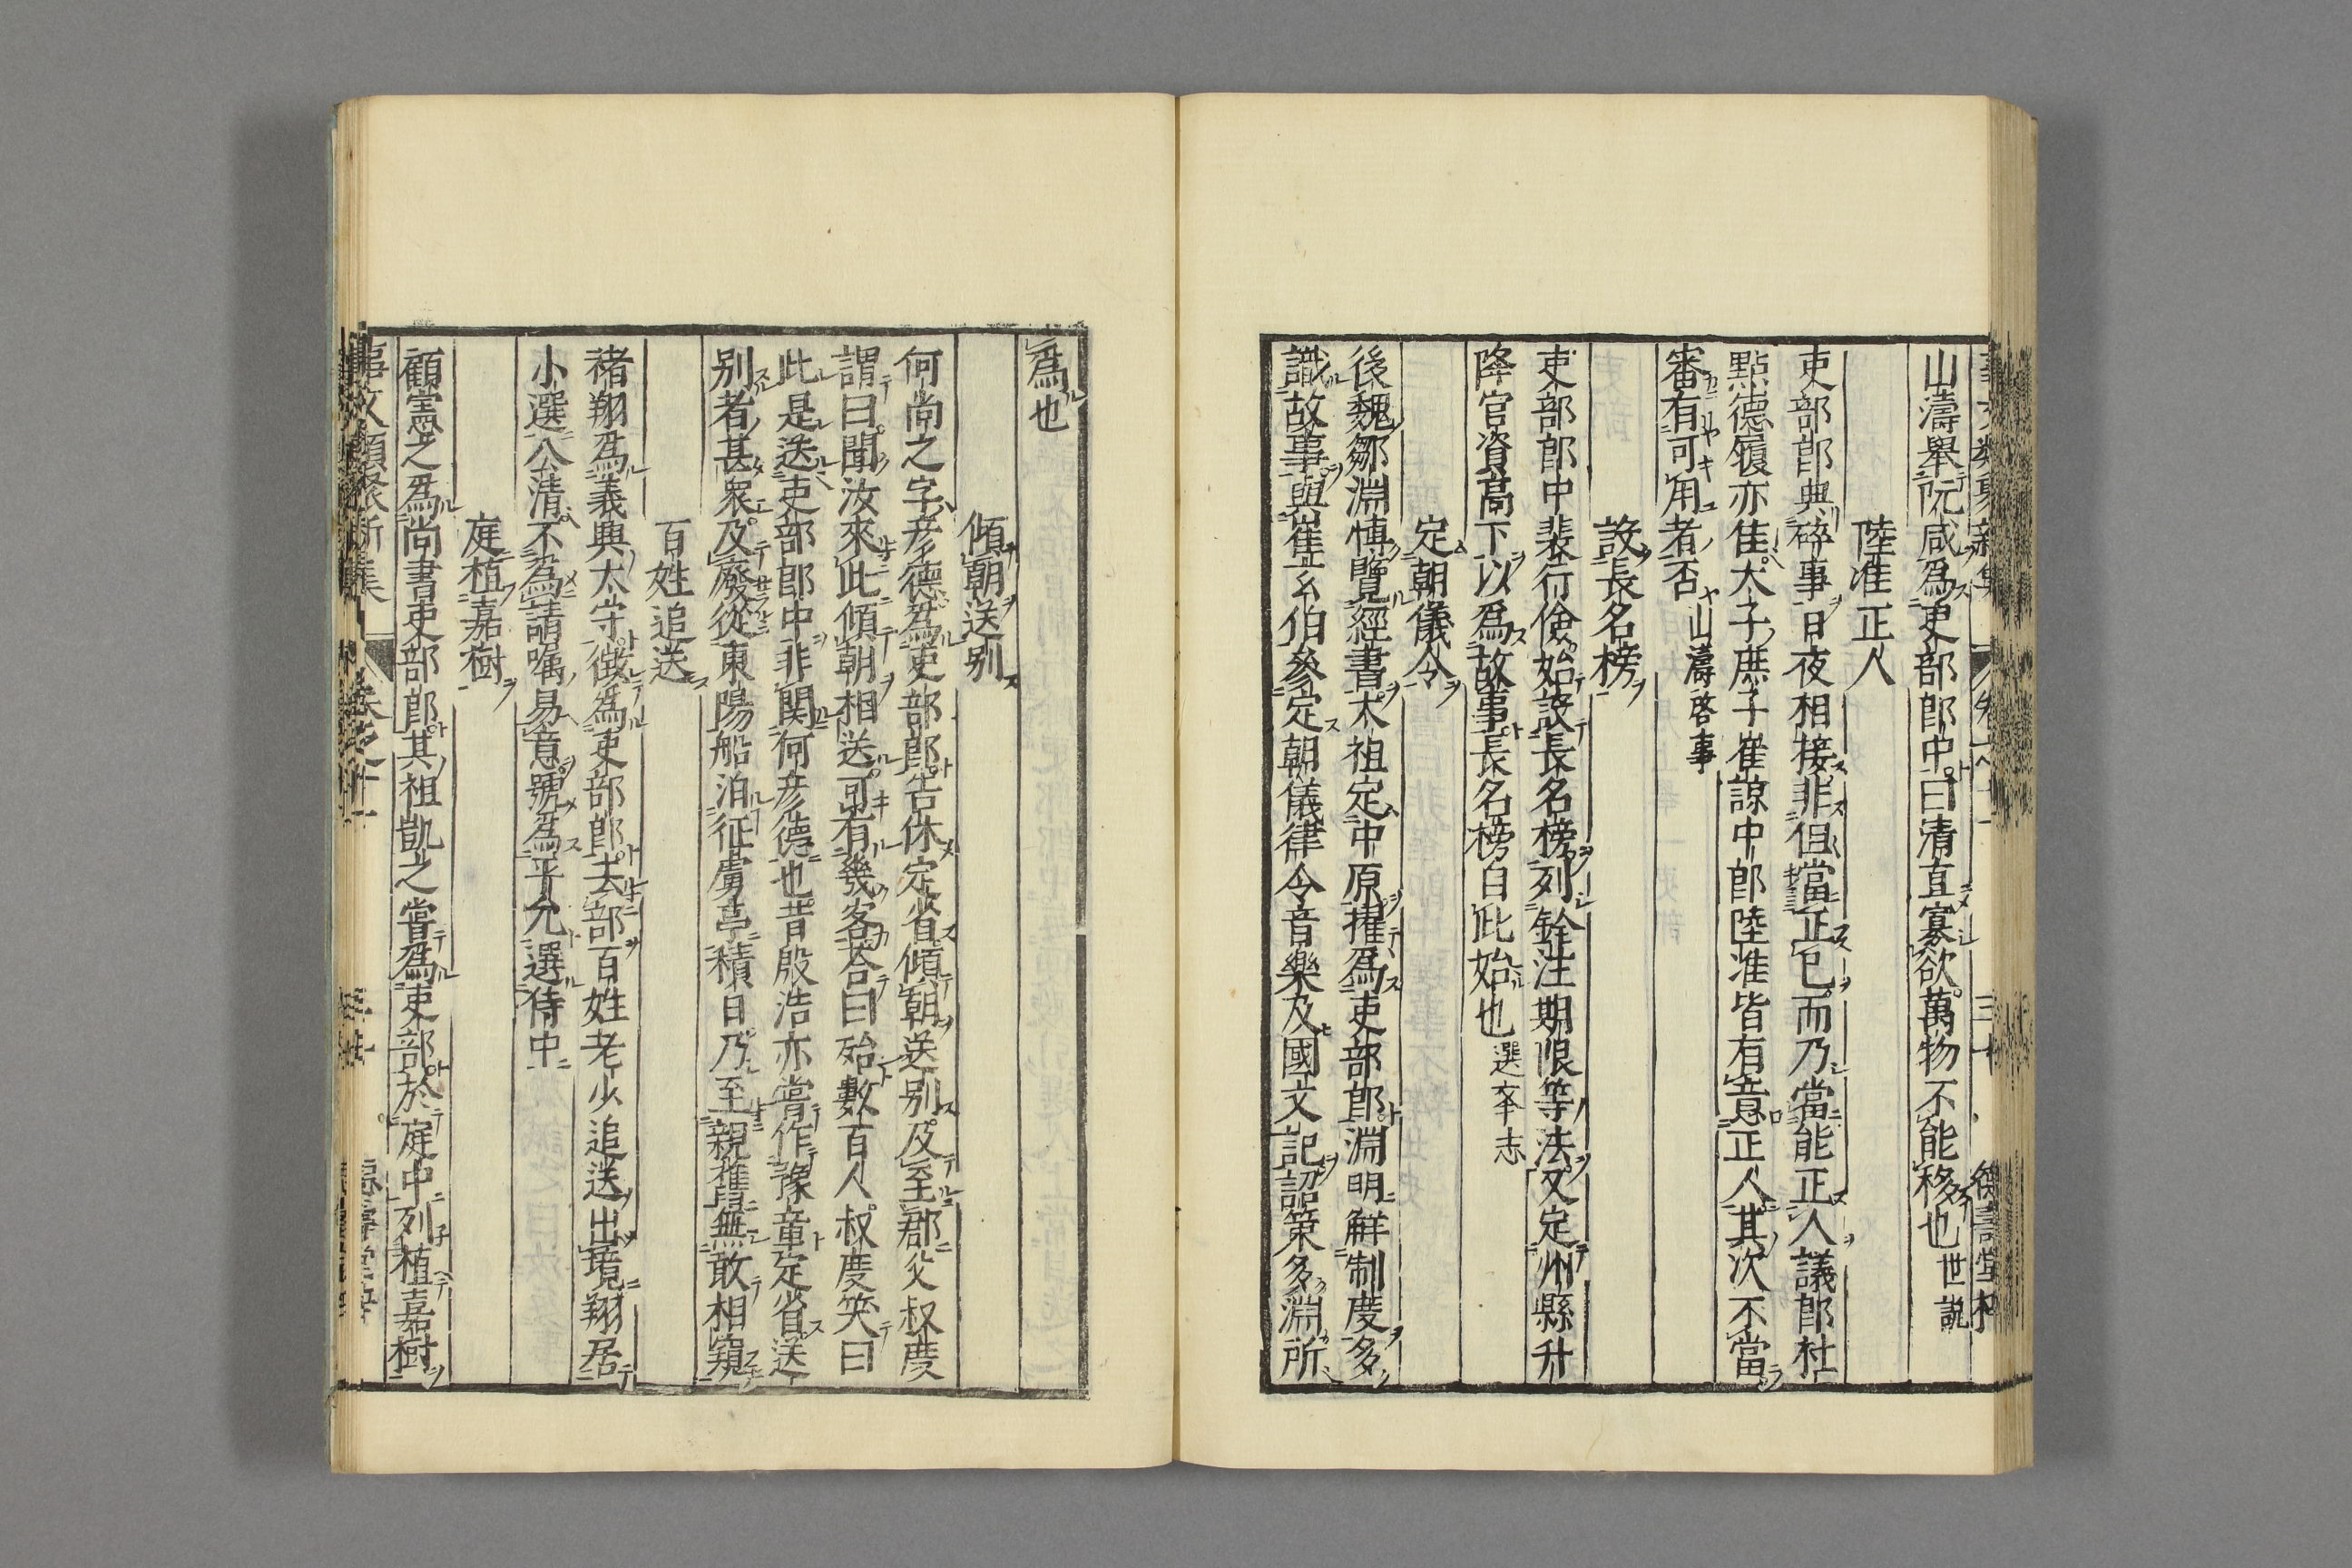 山濤舉阮咸爲吏部郎中曰清直寡欲萬物不能移也世說
陸准正人
吏部郎典碎事日夜相接非但當正已而乃當能正人議郎杜
點德履亦佳太子庶子崔諒中郎陸准皆有意正人其次不當
審有可用者否山濤啓事
設長名榜
吏部郎中裴行儉始設長名榜列銓注期限等法又定州縣升
降官資高下以爲故事長名榜自此始也選本志
定朝儀令
後魏鄧淵博覽經書太祖定中原擢爲吏部郎淵明解制度多
識故事與崔玄伯參定朝儀律令音樂及國文記詔策多淵所
爲也
傾朝送别
何尚之字彦德爲吏部郎告休定省傾朝送别及至郡父叔度
謂曰聞汝來此傾朝相送可有幾客荅曰殆數百人叔度笑曰
此是送吏部郎中非関何彦德也昔殷浩亦嘗作豫章定省送
别者甚衆及廢從東陽船泊征虜亭積日乃至親舊無敢相窺
百姓追送
褚翔爲義興太守徵爲吏部郎去郡百姓老少追送出境翔居
小選公清不爲請囑易意號爲平允選侍中
庭植嘉樹
顧憲之爲尚書吏部郎其祖凱之嘗爲吏部於庭中列植嘉樹